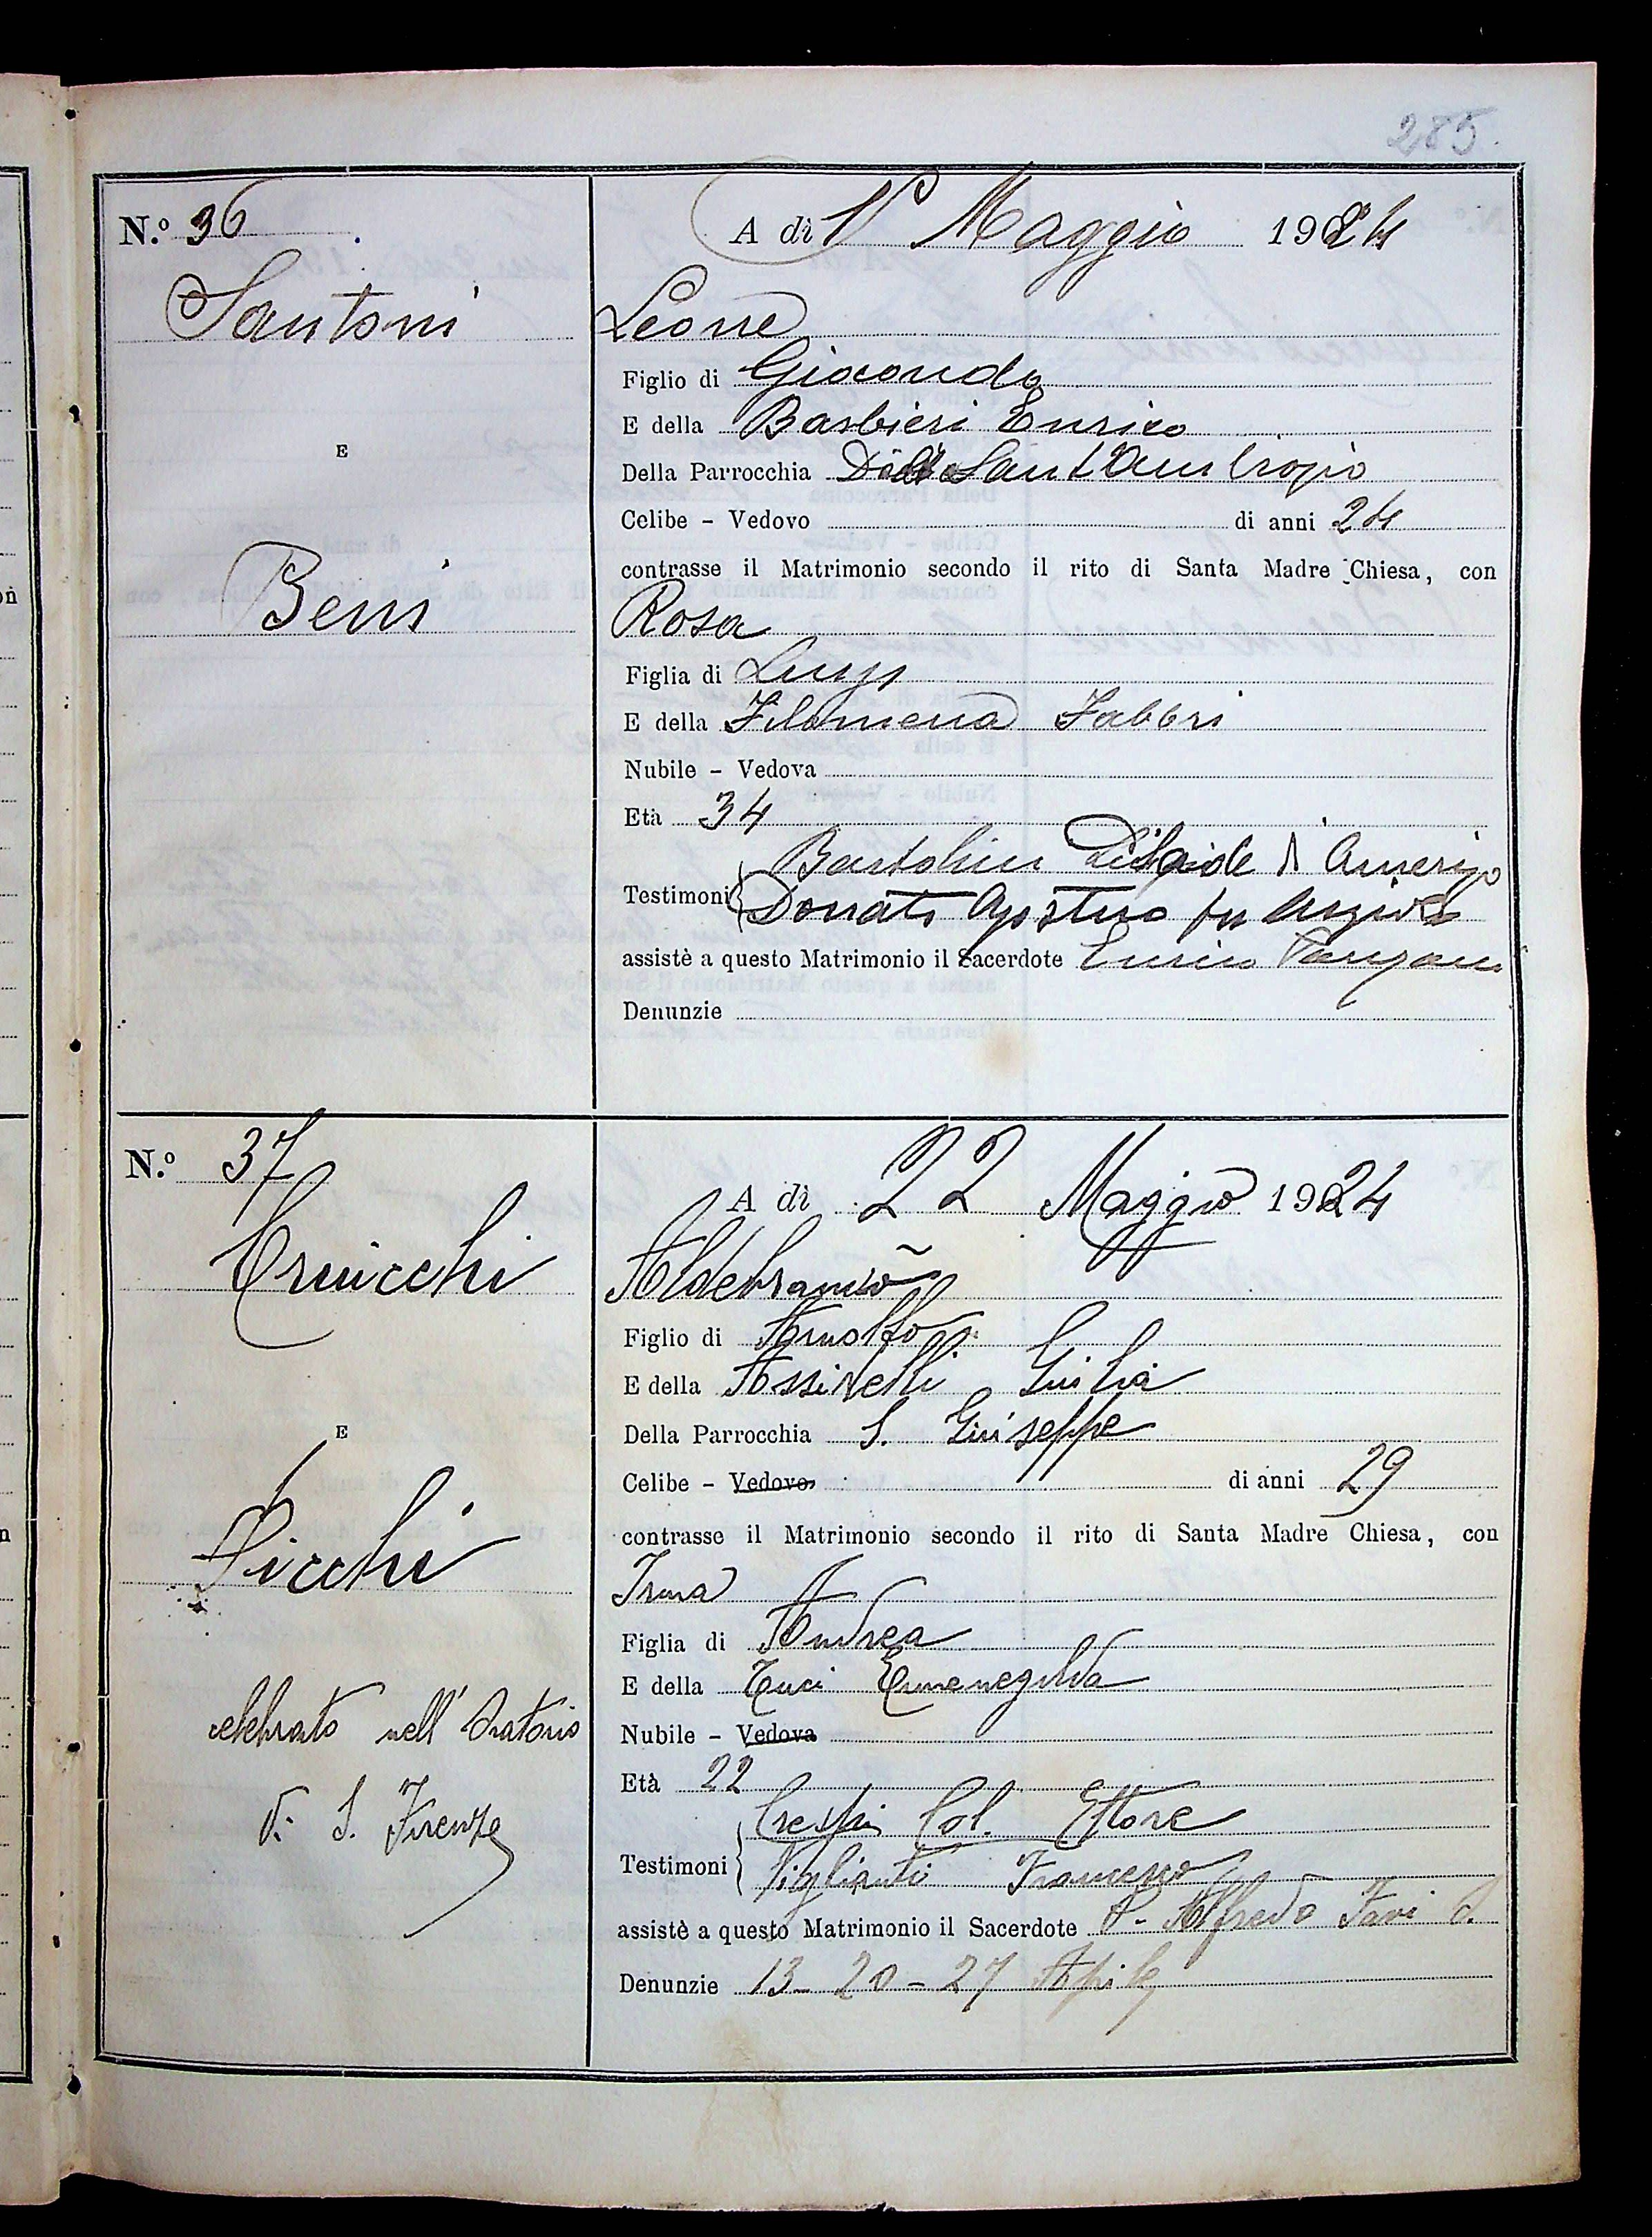 285.
N.º 36
A dì 1º Maggio 1924
Santoni
Leone
Figlio di Giocondo
E della Barbieri Enrica
E
Della Parrocchia Di Sant'Ambrogio
Celibe - Vedovo di anni 24
contrasse il Matrimonio secondo il rito di Santa Madre Chiesa, con
Beni
Rosa
Figlia di Luigi
E della Filomena Fabbri
Nubile - Vedova
Età 34
Bartolini di Amerigo
Testimoni Donati Agostino fu
assistè a questo Matrimonio il Sacerdote Enrico
Denunzie
N.º 37
A dì 22 Maggio 1924
Aldebrando
Figlio di Arnolfo
E della Assirelli Giulia
Della Parrocchia S. Giuseppe
E
Celibe - Vedovo di anni 29
contrasse il Matrimonio secondo il rito di Santa Madre Chiesa, con
Picchi
Irma
Figlia di Andrea
E della Tuci Ermenegilda
celebrato nell'Oratorio
Nubile - Vedova
Età 22
di S. Firenze
Crespi Col. Ettore
Testimoni Viglianti Francesco
assistè a questo Matrimonio il Sacerdote P. Alfredo Favi d.
Denunzie 13 - 20 - 27 Aprile